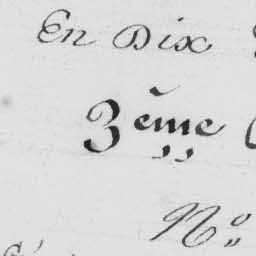 En Dix
3ème
Nº